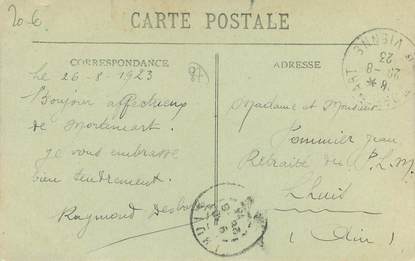 20€
CARTE POSTALE
CORRESPONDANCE
ADRESSE
Le 26-8-1923
Bonjour affectueux
de Montlhéart.
je vous embrasse
bien tendrement.
Raymond
Madame et Monsieur
Pommier Jean
Retraité du P.L.M.
Lhuis
(Ain)
VIENNE
18 *
26-8
23